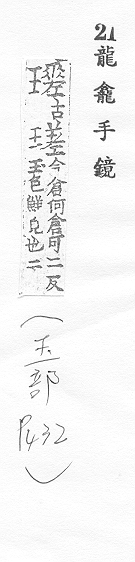 21 龍龕手鏡
古 今 倉何倉可二反
玉色鮮皃也二
(玉部
P432)